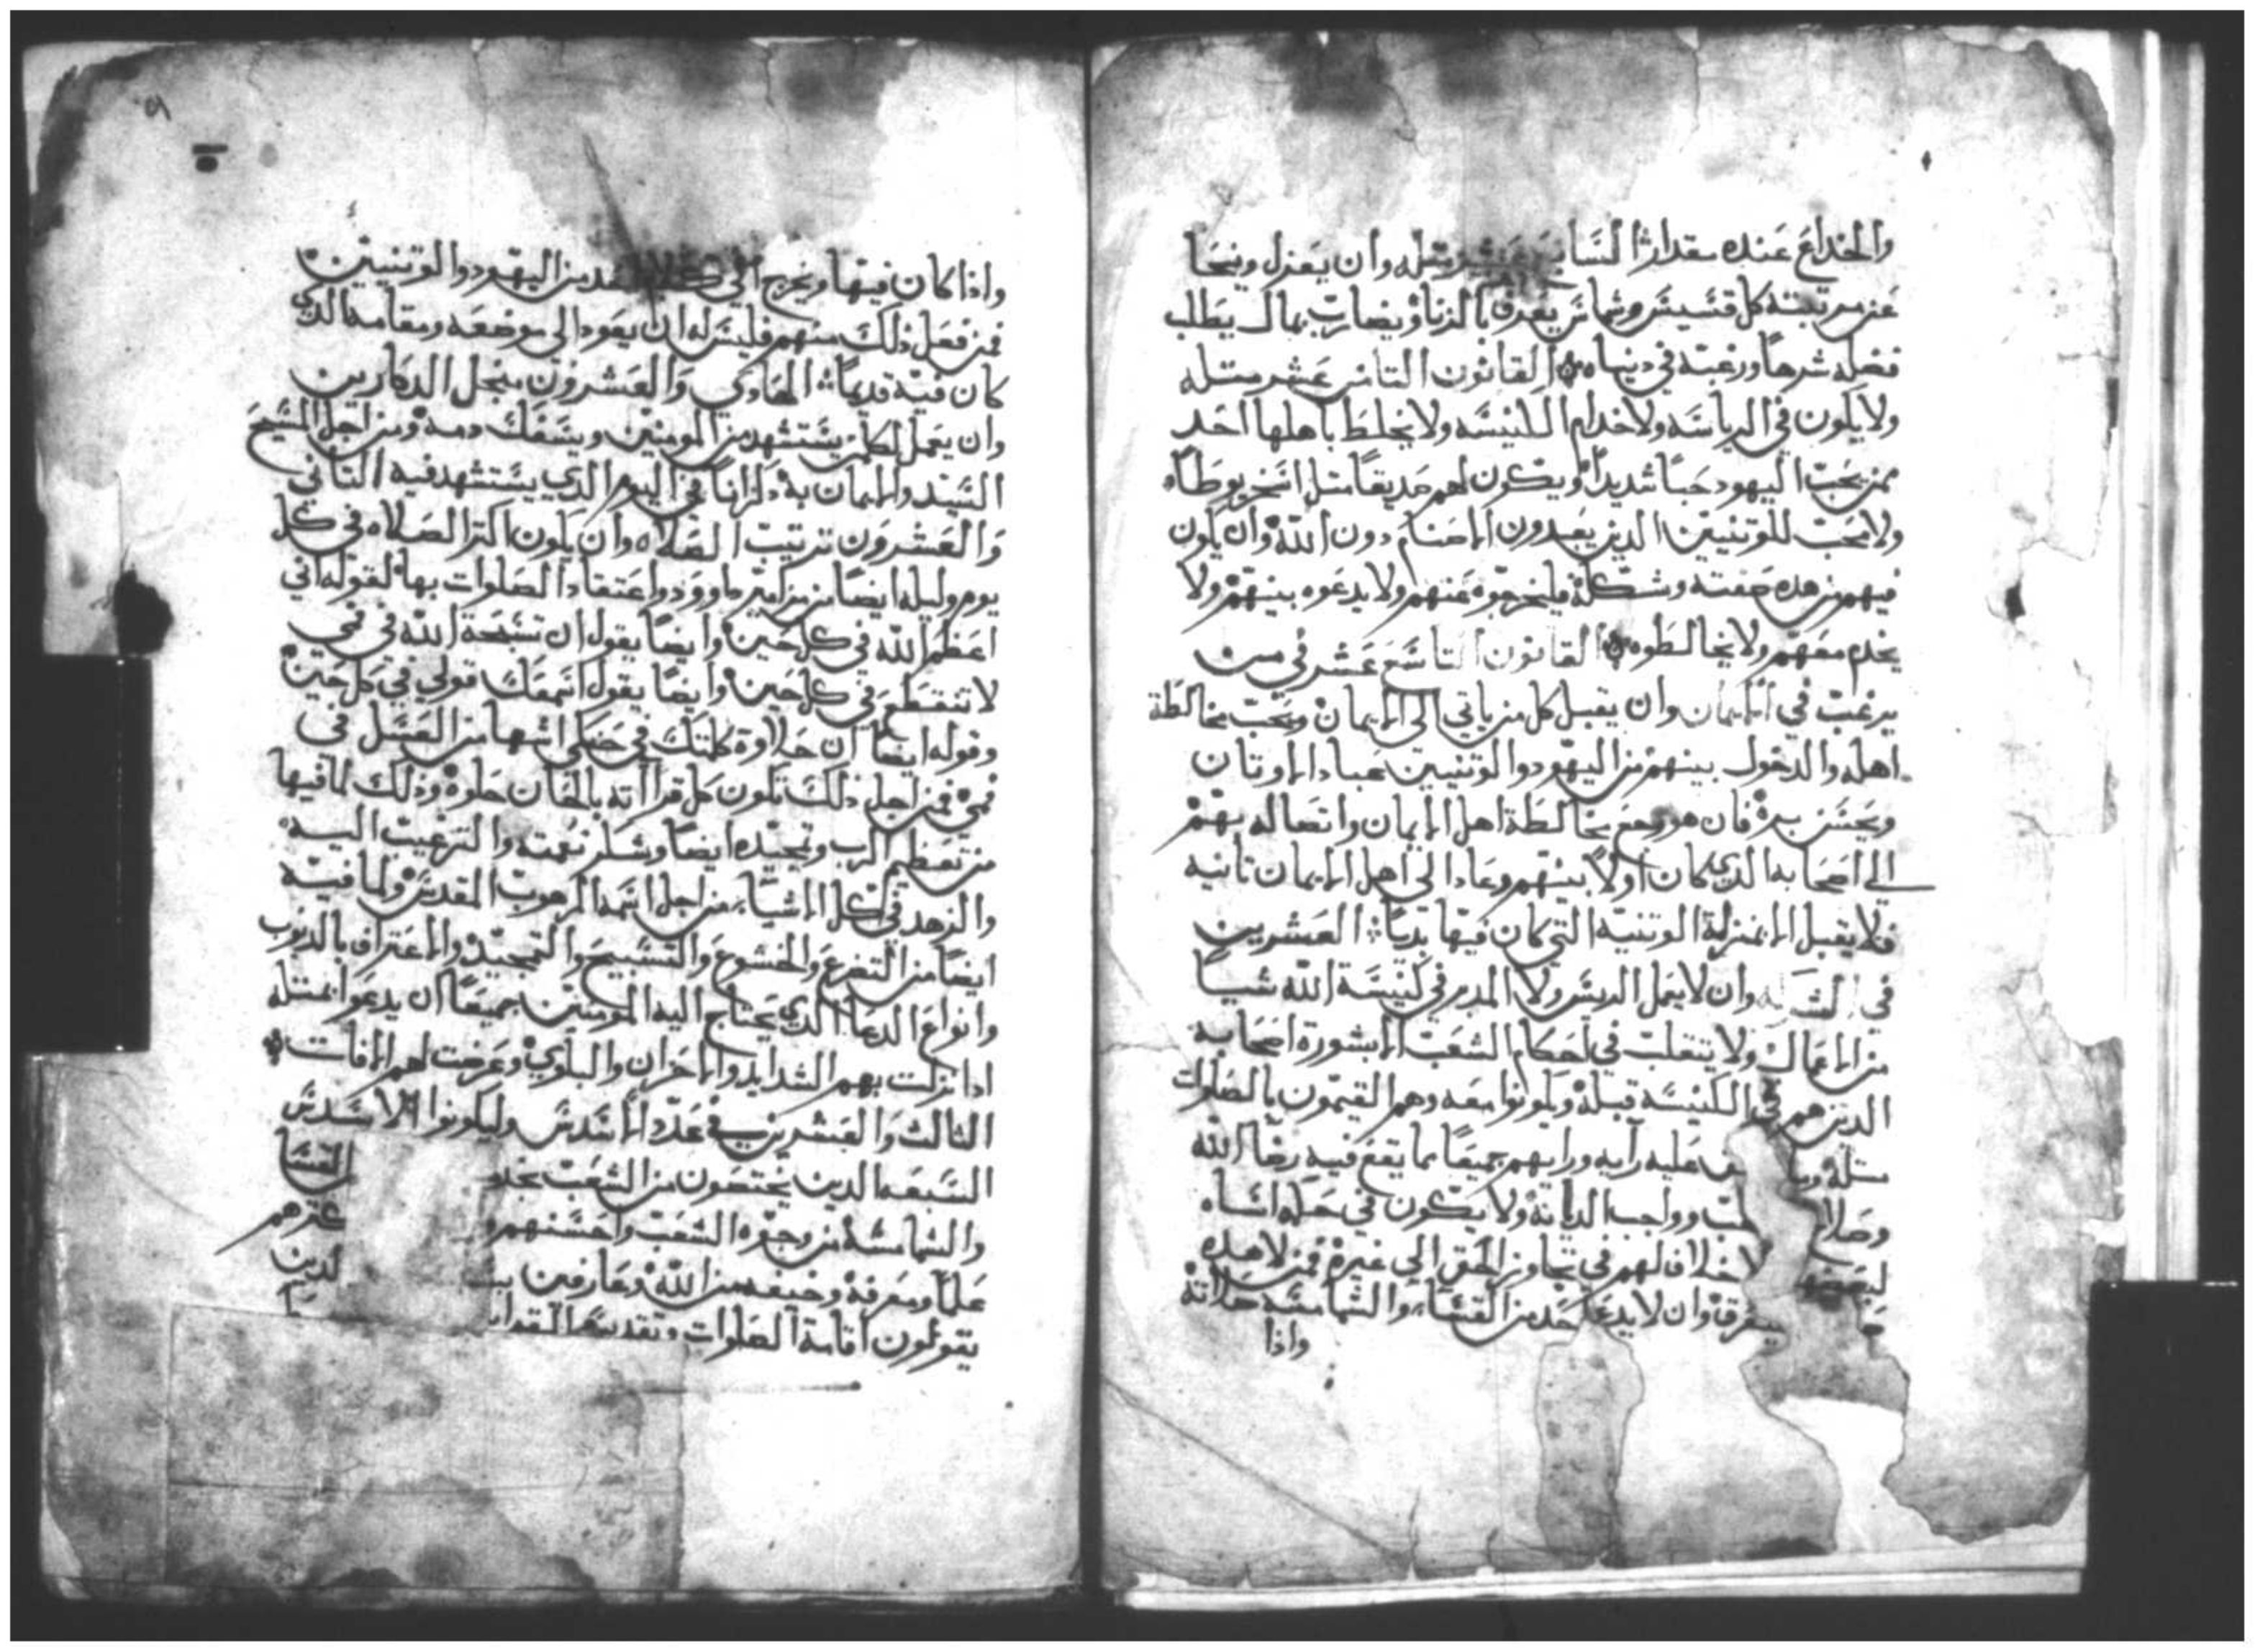 والخداع عنده مقدار السابع عشر مثله وان يعزل وينحا
عن مرتبته كل قسيس وشماس يعرف بالزنا ويضارب بمال يطلب
فضله شرها ورغبه في دنياه القانون التامن عشر مثله
ولا يكون في الرياسه ولا خدام الكنيسه ولا يخلط باهلها احد
ممن يحب اليهود حبا شديدا ويكون لهم صديقا مثل اسخريوطا
ولا محب للوتنيين الدين يعبدون الاصنام دون الله وان يكون
فيهم من هده صفته وشكله فليخرجوه عنهم ولا يدعوه بينهم ولا
يخدم معهم ولا يخالطوه القانون التاسع عشر في من
يرغب في الايمان وان يقبل كل من ياتي الى الايمان ويحب مخالطة
اهله والدخول بينهم من اليهود والوتنيين عباد الاوتان
ويحسن بره فان هو رجع مخالطة اهل الايمان واتصاله بهم
الى اصحابه الدي كان اولا بينهم وعاد الى اهل الايمان تانيه
فلا يقبل الا بمنزلة الوتنية التي كان فيها بديا العشرين
في وان لا يعمل الريس ولا المدبر في كنيسة الله شيا
من الاعمال ولا يتقلب في احكام الشعب الا بمشورة اصحابه
الدين هم في الكنيسه قبله ويكونوا معه وهم القيمون بالصلوات
مثله وما عليه رايه ورايهم جميعا مما يقع فيه رضا الله
وصلاح وواجب الديانه ولا يكون في
لبعضهم لا خلاف لهم في تجاوز الحق الى غيره فمن
وان لا يدعا احد من القساء والشمامسه
واذا
واذا كان فيها ويخرج الي من اليهود والوتنيين
فمن فعل ذلك منهم فليس له ان يعود الى موضعه ومقامه الدي
كان فيه قديما الحادي والعشرون منجل الدكارين
وان يعمل لكل من يستشهد من المومنين ويسفك دمه من اجل المسيح
السيد والايمان به دكرانا في اليوم الدي يستشهد فيه التاني
والعشرون ترتيب الصلاه وان يكون اكتر الصلاه في كل
يوم وليله ايضا من مزامير داوود واعتقاد الصلوات بها لقوله اني
اعظم الله في كل حين وايضا يقول ان تسبحة الله في فمي
لا تنقطع في كل حين وايضا يقول قولي في كل حين
وقوله ايضا ان حلاوة كلمتك في حنكي اشها من العسل في
فمي فمن اجل ذلك تكون كل قرااته بالحان حلوه وذلك لما فيها
من تعظيم الرب وتمجيده ايضا وشكر نعمته والترغيب اليه
والزهد في كل الاشيا من اجل اسمه المرهوب المقدس ولما فيه
ايضا من التضرع والخشوع والتسبيح والتمجيد والاعتراف بالدنوب
وانواع الدعا الدي يحتاج اليه المومنين جميعا ان يدعوا بمتله
ادا نزلت بهم الشدايد والاحزان والبلوي وعرضت لهم الافات
التالت والعشرين في عدد وليكونوا
السبعه الدين يختصون من الشعب القسا
والشمامسه من وجوه الشعب واحسنهم
علما ومعرفه وخيفه من الله وعارفين لدين
يقولون اقامة الصلوات وتقديس